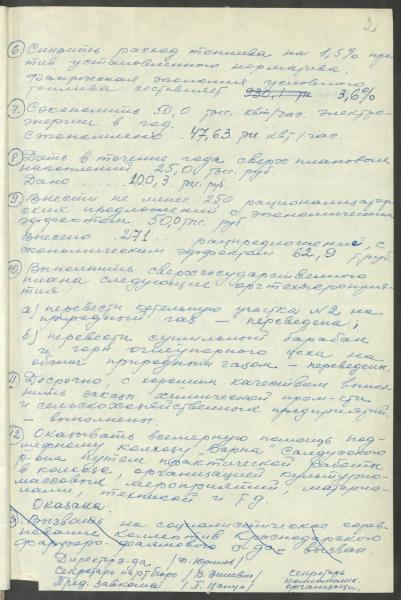 21
6) Снизить расход топлива на 1,5% про-
тив установленного норматива.
Фактическая экономия условного
топлива составляет 930,1 тн 3,6%
7) Сэкономить 50,0 тыс. квт/час. электро-
энергии в год.
Сэкономлено 47,63 тн. квт/час.
8) Дать в течение года сверхплановых
накоплений 25,00 тыс. руб.
Дано ....... 100,3 тыс. руб.
9) Внести не менее 250 рационализатор-
ских предложений с экономическим
эффектом 50,0 тыс. руб.
Внесено .. 271 .. рацпредложений, с
экономическим эффектом 62,9 т/руб.
10) Выполнить сверхгосударственного
плана следующие оргтехмероприя-
тия:
а) перевести котельную участка №2 на
природный газ — переведена;
б) перевести сушильный барабан
и горн огнеупорного цеха на
обжиг природным газом — переведены.
11) Досрочно, с хорошим качеством выпол-
нить заказы химической пром-сти
и сельскохозяйственных предприятий.
— выполнены.
12) Оказывать всемерную помощь под-
шефному колхозу
р-на путем практической работы
в колхозе, организацией культурно-
массовых мероприятий, материа-
лами, техникой и т.д.
Оказана.
13) Вызвать на социалистическое сорев-
нование коллектив Краснодарского
фарфоро-фаянсового з-да — вызван.
Директор з-да
Секретарь партбюро
Пред. завкома
секретарь
комсомольск.
организации